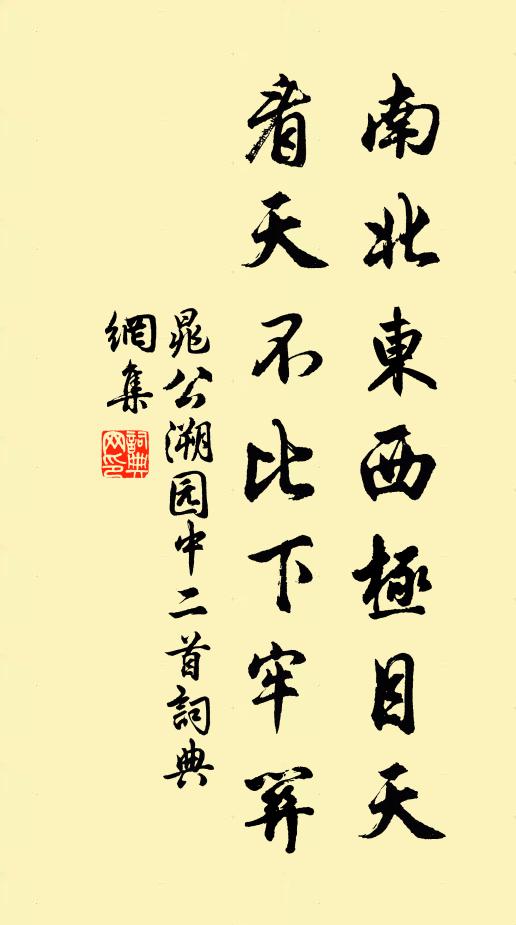 南北東西極目天
看天不比下牢關
晁公溯园中二首詞典
網集
詞典
网印